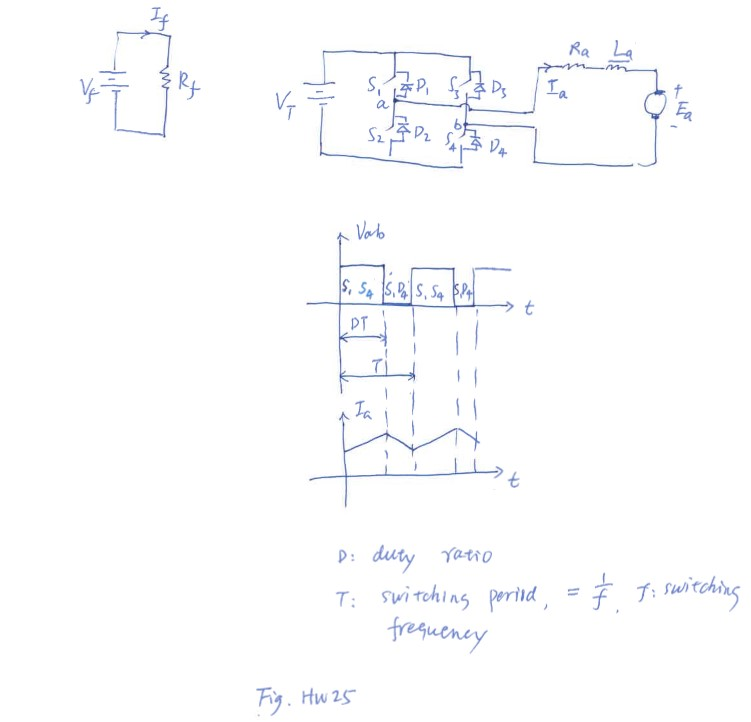 If
Vf
Rf
VT
S1
D1
S3
D3
a
S2
D2
b
S4
D4
Ra
La
Ia
+
Ea
-
Vab
S1 S4
S1 D4
S1 S4
S1 D4
t
DT
T
Ia
t
D: duty ratio
T: switching period, = 1/f, f: switching
frequency
Fig. HW25